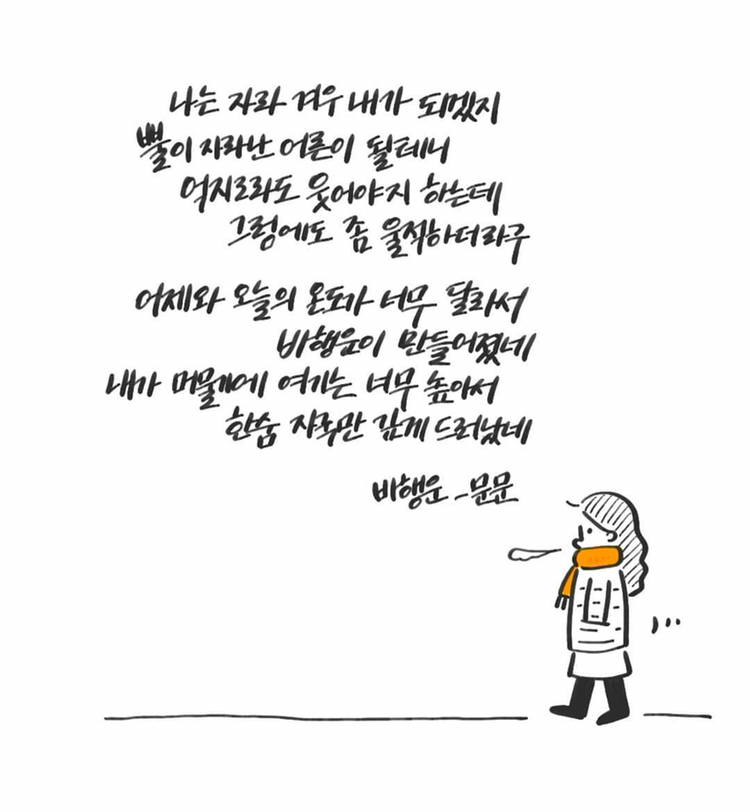 나는 자라 겨우 내가 되겠지
뿔이 자라난 어른이 될테니
억지로라도 웃어야지 하는데
그럼에도 좀 울적하더라구
어제와 오늘의 온도가 너무 달라서
비행운이 만들어졌네
내가 머물기에 여기는 너무 높아서
한숨 자국만 깊게 드러났네
비행운 - 문문